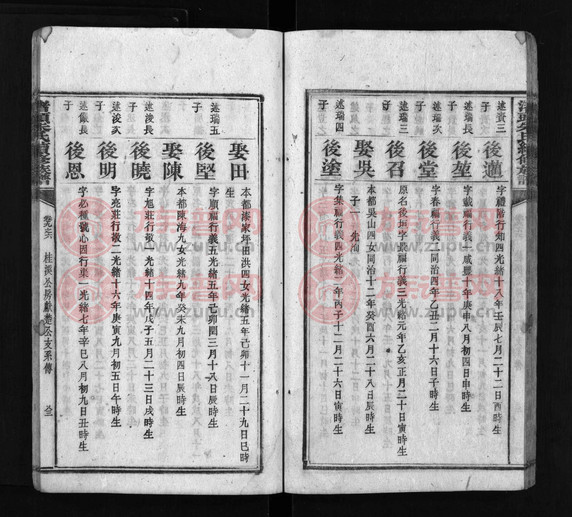 述賁三子
後蘧
字禮階行知四光緒十八年壬辰七月二十二日酉時生
述瑞三子
後堃
字載福行義一咸豐十年庚申八月初四日申時生
後堂
字春福行義二同治四年乙丑二月十六日子時生
後召
原名後垣字厳福行義三光緒元年乙亥正月二十日寅時生
娶吳
本都吳山四女同治十二年癸酉六月二十八日辰時生
子一 先
述瑞四子
後塗
字集福行義四光緒二年丙子十二月二十六日寅時生
娶田
本都漆家坪田洪四女光緒五年己卯十一月二十九日巳時生
述瑞五子
後堅
字順福行義五光緒五年己卯閏三月十八日辰時生
娶陳
本都陳海九女光緒九年癸未九月初四日辰時生
述浚長子
後曉
字旭莊行敬一光緒十四年戊子五月二十三日戌時生
述浚次子
後明
字亮莊行敬二光緒十六年庚寅九月初五日午時生
述 長子
後恩
字必種號心田行東一光緒七年辛巳八月初九日丑時生
卷之六 桂溪公房獻 公支系傳
族普网
www.zupu.cn